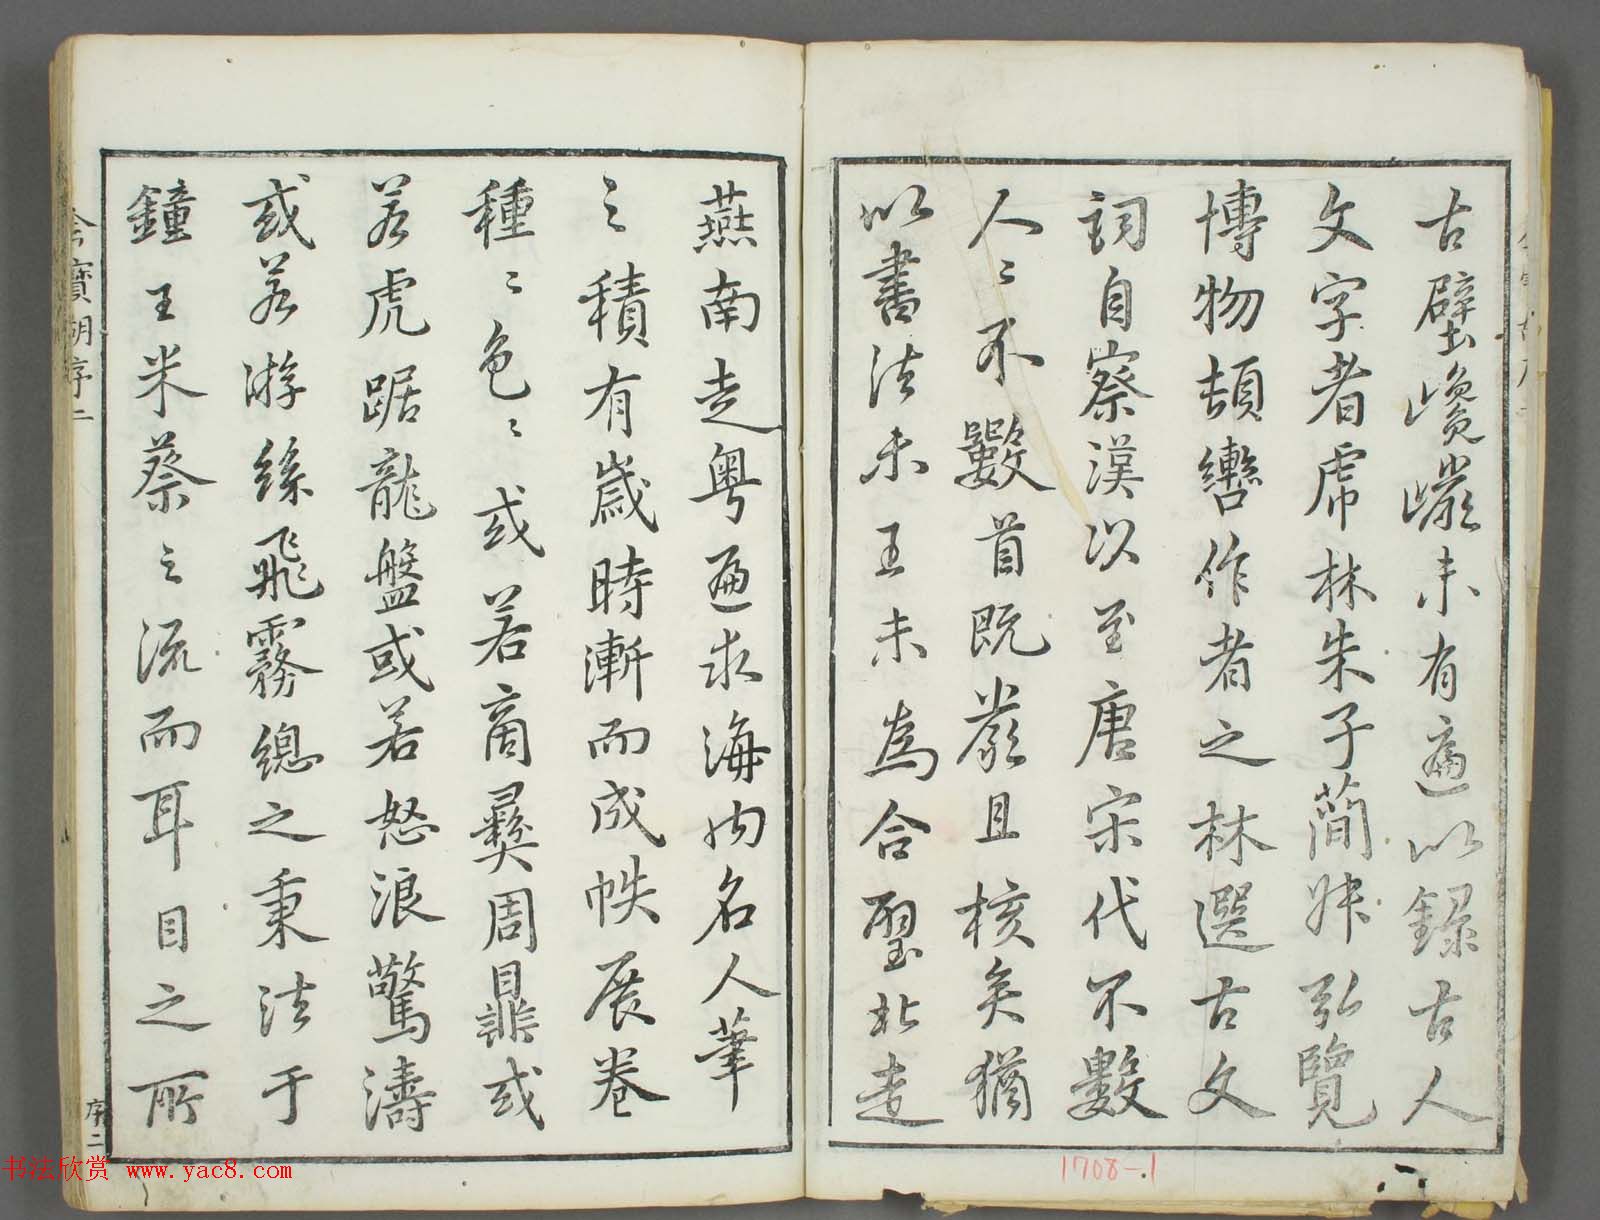 古壁巉巖未有遍以錄古人
文字者虎林朱子簡叔弘覽
博物頡轡作者之林選古文
詞自秦漢以至唐宋代不數
人人不數首既嚴且核矣猶
以書法未工未為合璧北走
燕南走粤遍求海内名人筆
之積有歲時漸而成帙展卷
種種色色或若商彝周鼎或
若虎踞龍盤或若怒浪驚濤
或若游絲飛霧總之秉法于
鐘王米蔡之流而耳目之所
序二
序二
1708-1
书法欣赏 www.yac8.com